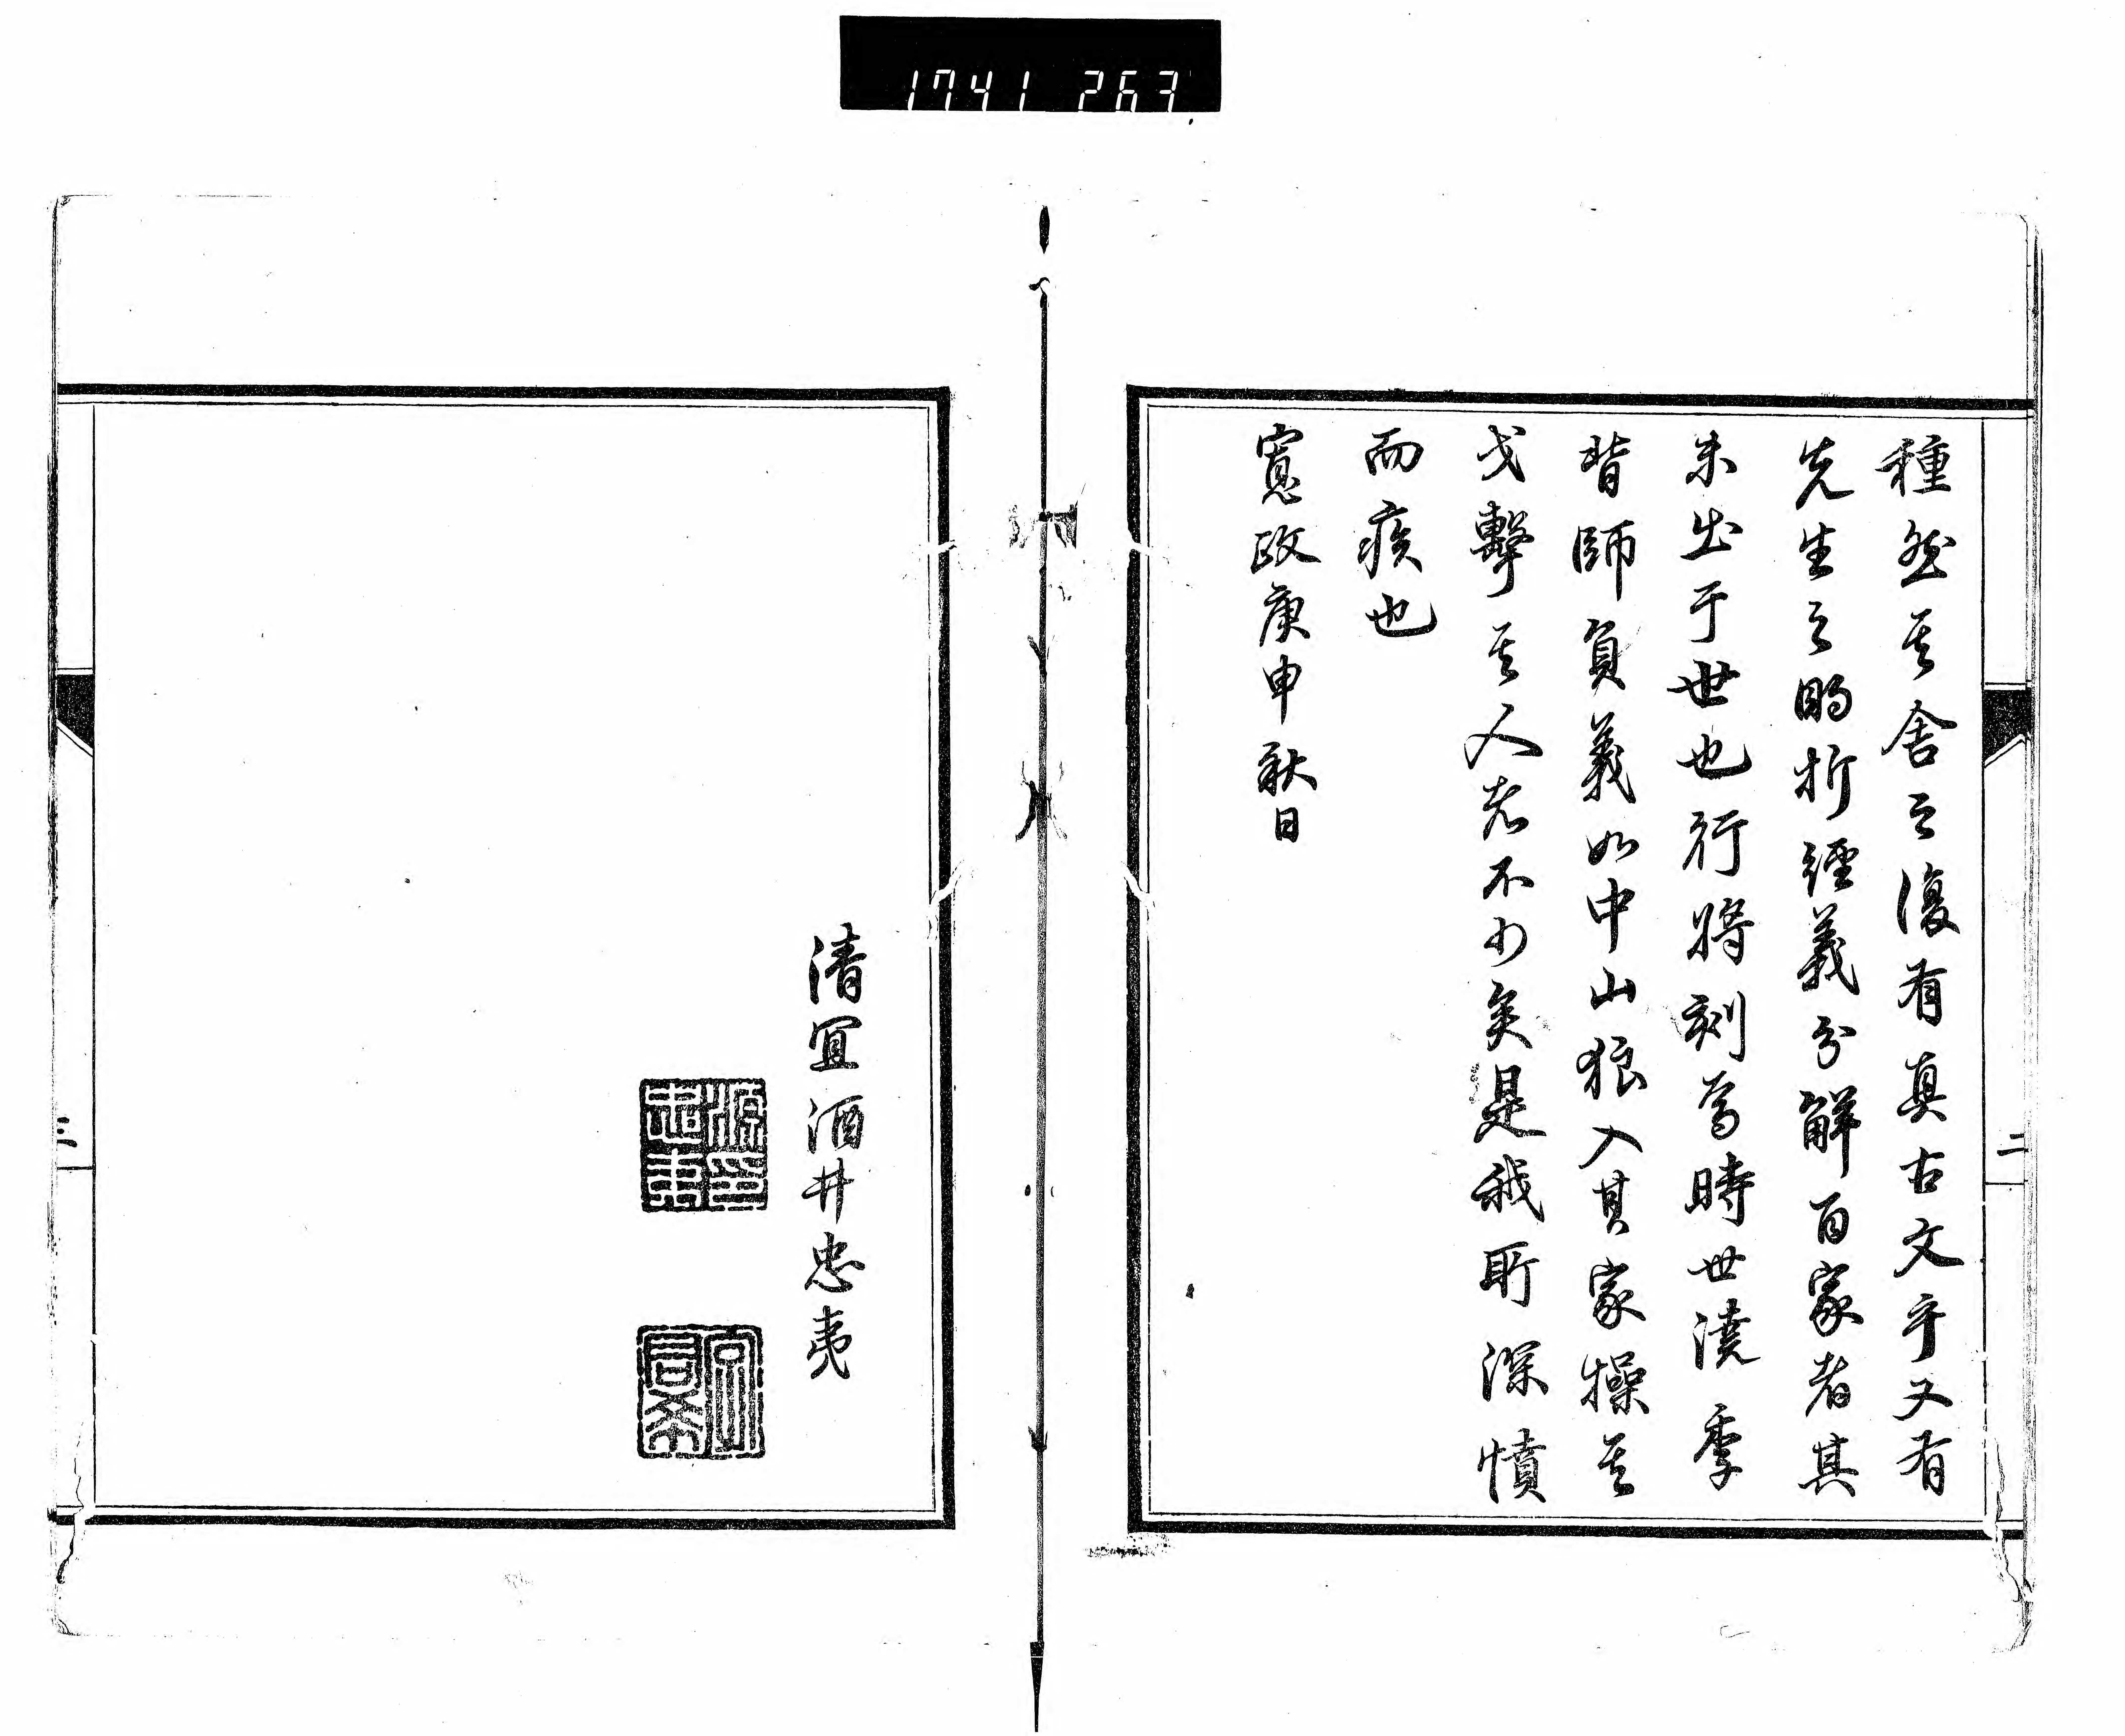 1741 263
二
種然其舍之復有真古文乎又有
先生之明析經義分解百家者其
未出于世也行將刻焉時世澆季
背師負義如中山狼入其家操其
戈擊其人者不少矣是我所深憤
而疾也
寬政庚申秋日
清宜酒井忠夷
三